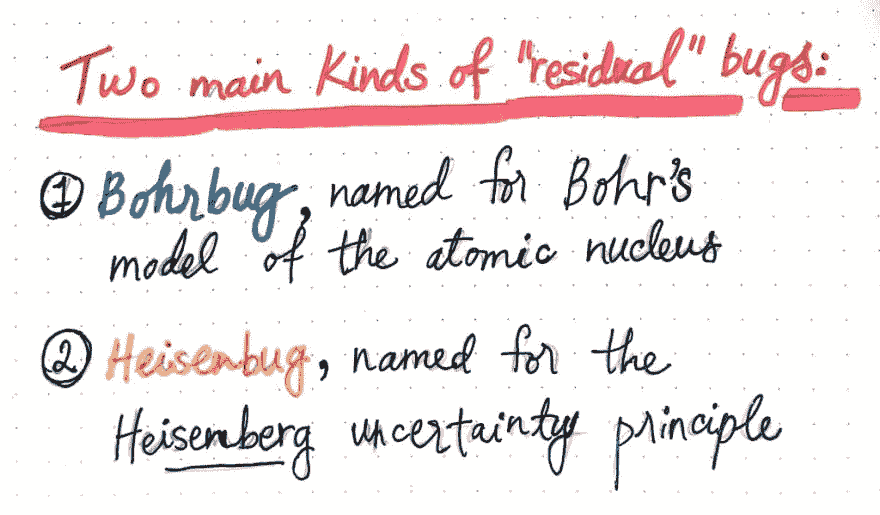 Two main kinds of "residual" bugs:
① Bohrbug, named for Bohr's
model of the atomic nucleus
② Heisenbug, named for the
Heisenberg uncertainty principle